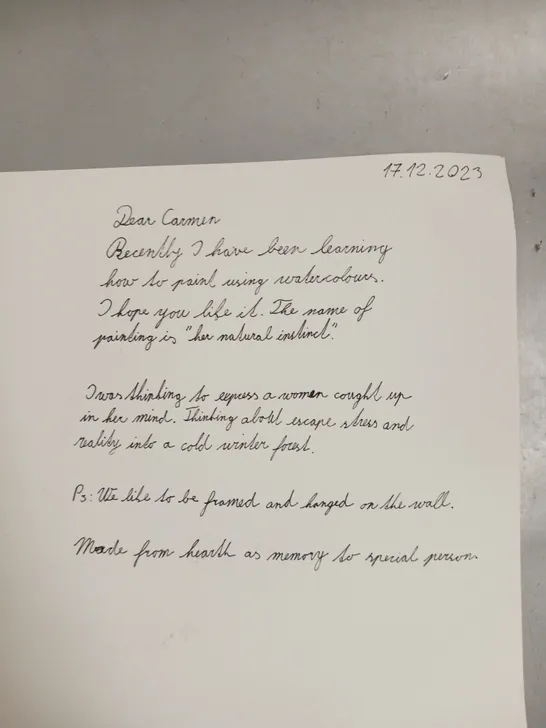 17.12.2023
Dear Carmen
Recently I have been learning
how to paint using watercolours.
I hope you like it. The name of
painting is "her natural instinct".
I was thinking to express a women cought up
in her mind. Thinking about escape stress and
reality into a cold winter forest.
Ps: We like to be framed and hanged on the wall.
Made from hearth as memory to special person.